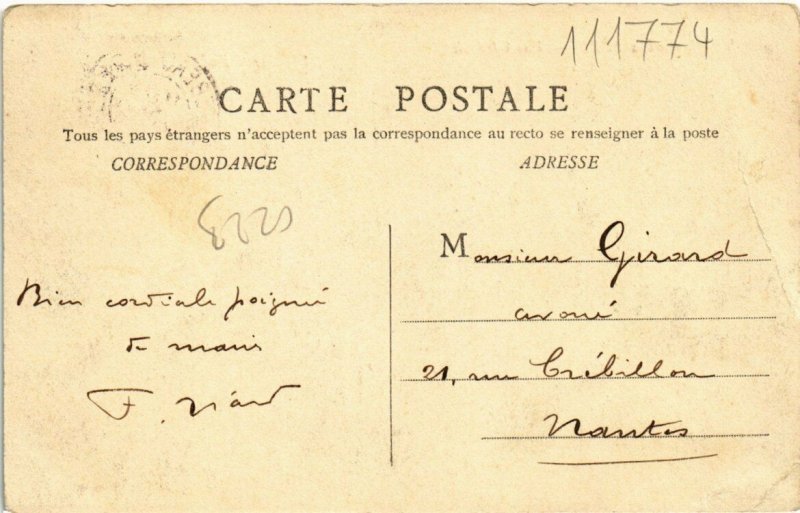 111774
CARTE POSTALE
Tous les pays étrangers n'acceptent pas la correspondance au recto se renseigner à la poste
CORRESPONDANCE
ADRESSE
Bien cordiale poignée
de main
F.
Monsieur Girard
avoué
21, rue Crébillon
Nantes